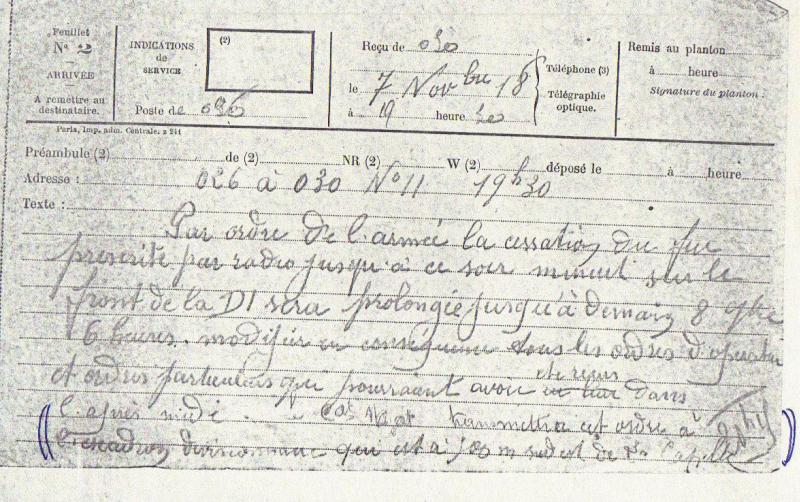 Feuillet
Nº 2
ARRIVÉE
A remettre au
destinataire.
INDICATIONS
de
SERVICE
(2)
Poste de 026
Reçu de 030
le 7 Novbre 18
à 19 heure 30
Téléphone (3)
Télégraphie
optique.
Remis au planton
à heure
Signature du planton :
Paris, Imp. adm. Centrale. z 244
Préambule (2) de (2) NR (2) W (2) déposé le à heure
Adresse : 026 à 030 Nº 11 19h30
Texte :
Par ordre de l'armée la cessation du feu
prescrite par radio jusqu'à ce soir minuit sur le
front de la DI sera prolongée jusqu'à demain 8 9bre
6 heures. modifier en conséquence tous les ordres d'opération
et ordres particuliers qui pourraient avoir été reçus dans
l'après midi. transmettra cet ordre à
l'escadron divisionnaire qui est à sud est de la Capelle